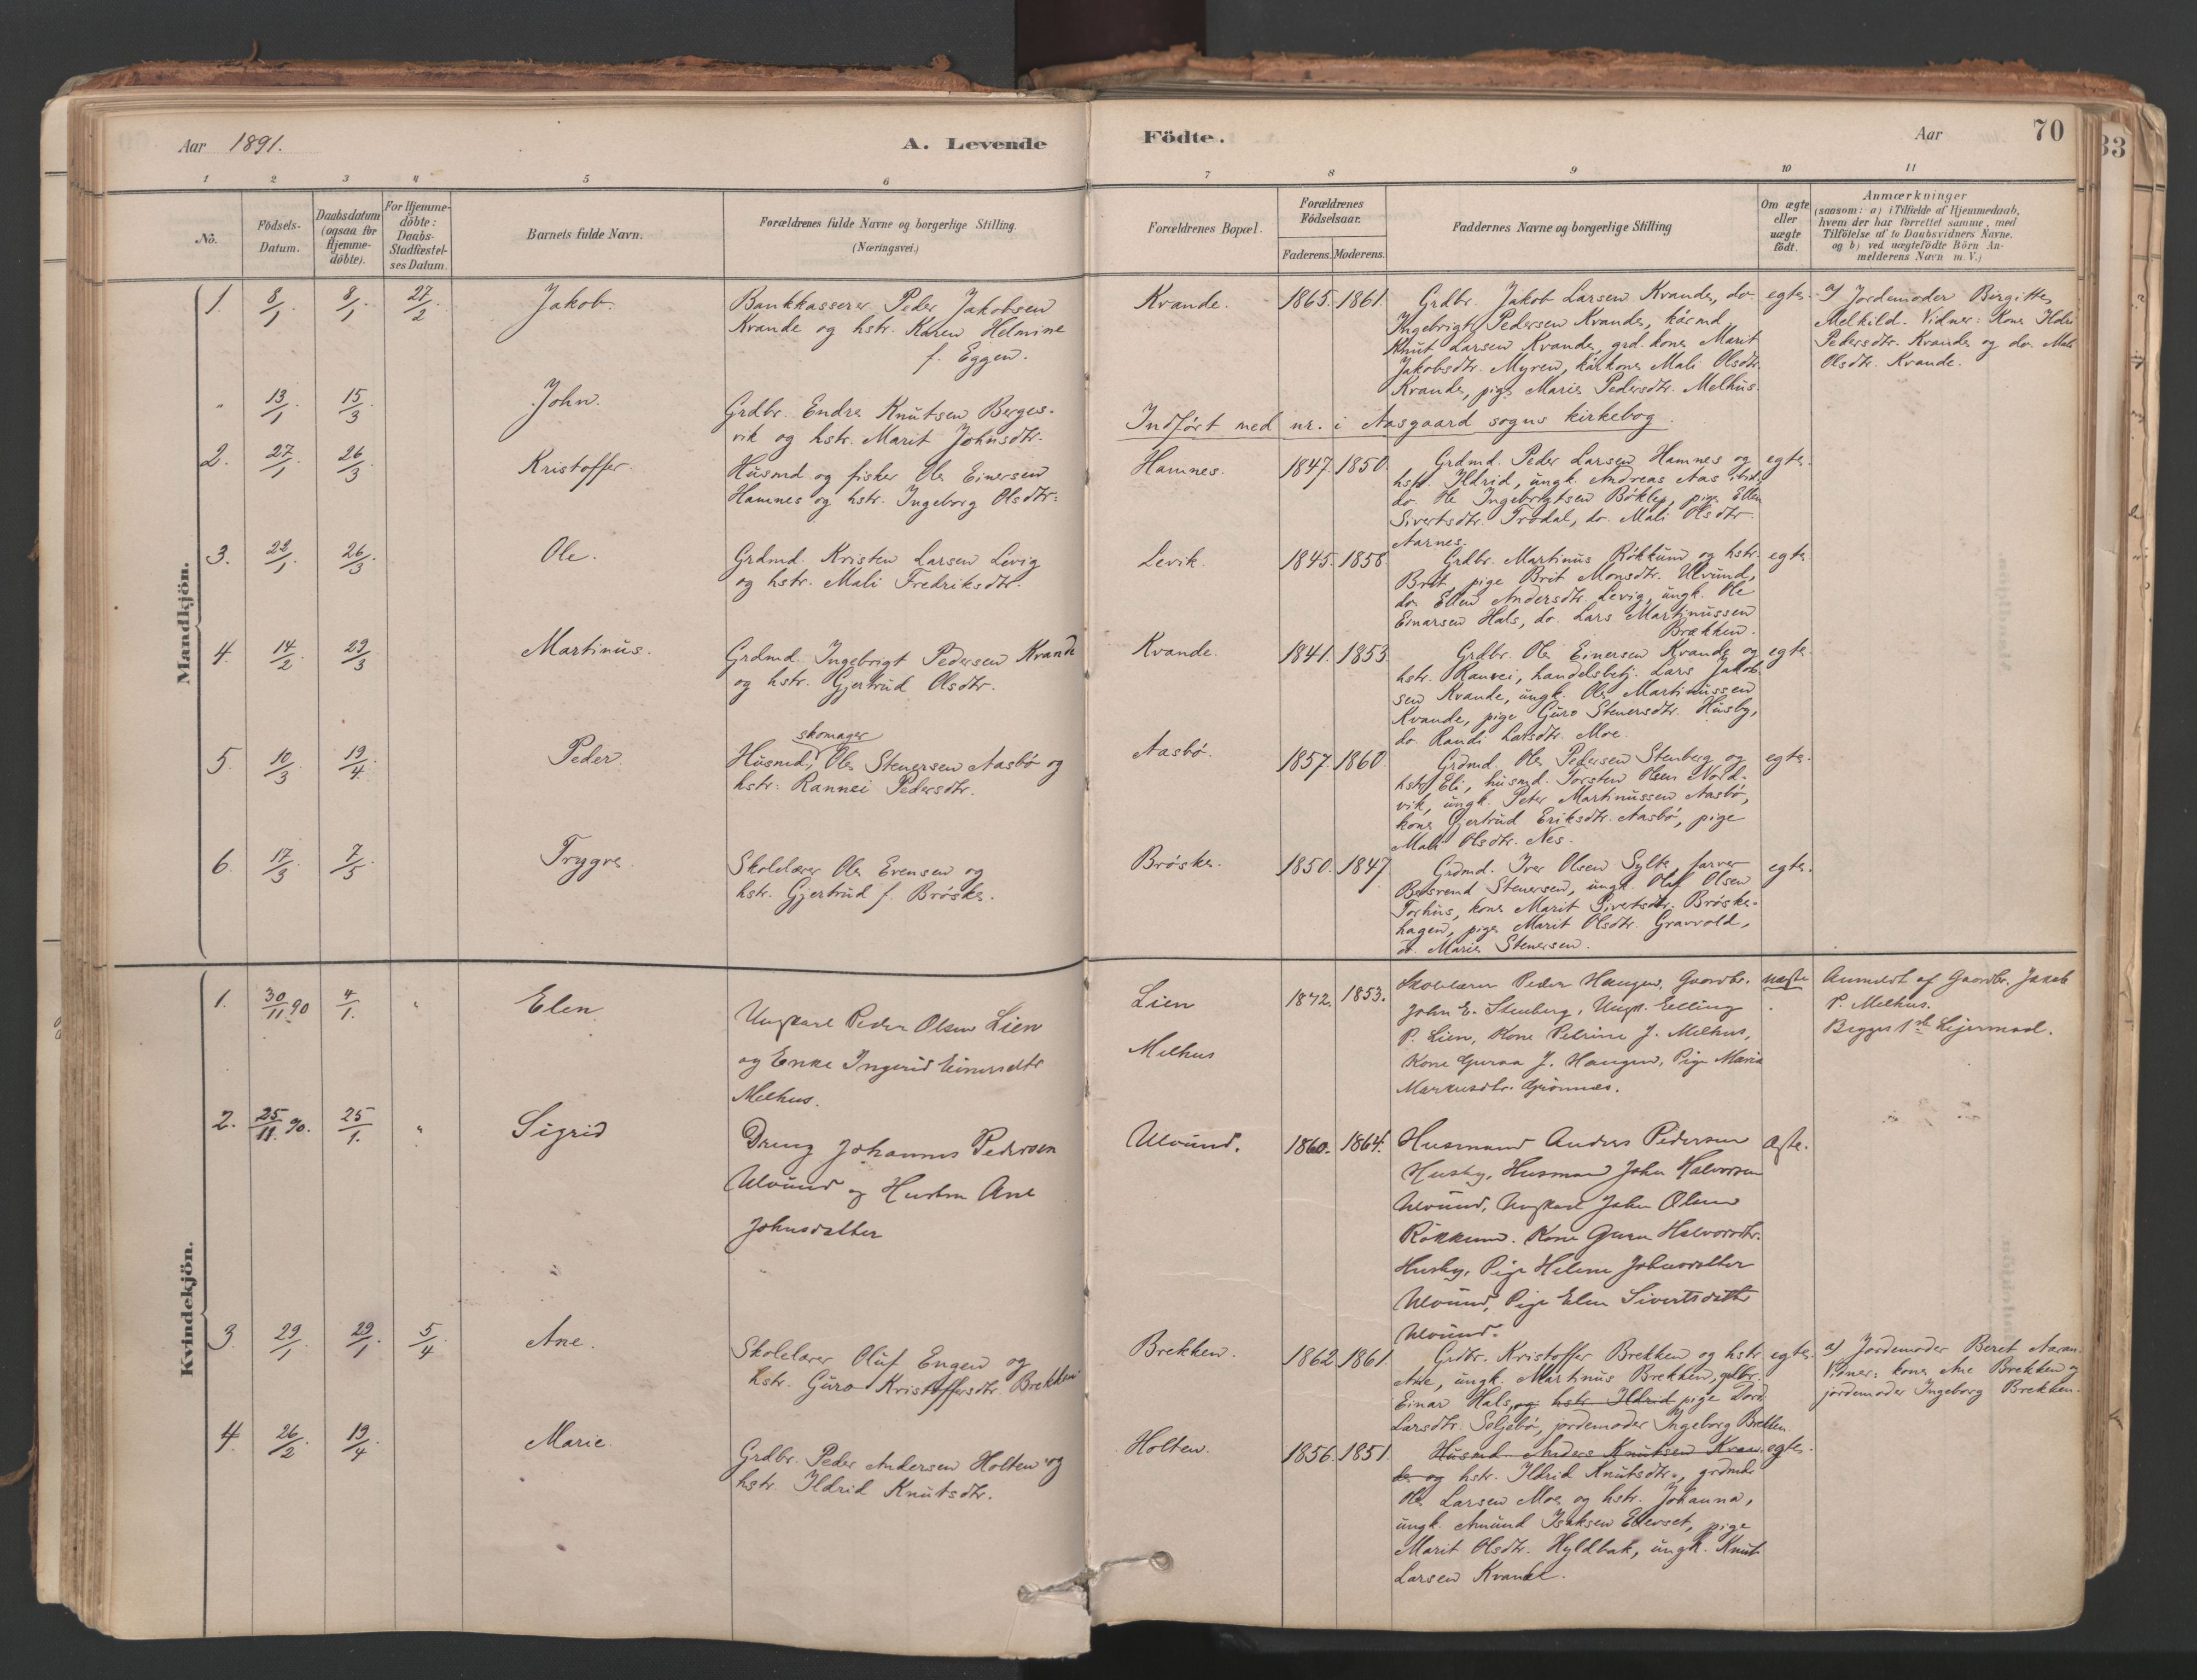 Aar 1891.
A. Levende
Födte.
Aar
70
33
1 2 3 4 5 6 7 8 9 10 11
No.
Födsels-
Datum.
Daabsdatum
(ogsaa for
Hjemme-
döbte).
For Hjemme-
döbte:
Daabs-
Stadfæstel-
ses Datum.
Barnets fulde Navn.
Forældrenes fulde Navne og borgerlige Stilling.
(Næringsvei.)
Forældrenes Bopæl.
Forældrenes
Födselsaar.
Faderens. Moderens.
Faddernes Navne og borgerlige Stilling
Om ægte
eller
uægte
födt.
Anmærkninger
(saasom: a) i Tilfælde af Hjemmedaab,
hvem der har forrettet samme, med
Tilföielse af to Daabsvidners Navne.
og b) ved uægtefödte Börn An-
melderens Navn m. V.)
Mandkjön.
1. 8/1. 8/1. 27/2 Jakob.
Bankkasserer Peder Jakobsen
Kvande og hstr. Karen Helmine
f. Eggen.
Kvande. 1865. 1861.
Grdbr. Jakob Larsen Kvande, do.
Ingebrigt Pedersen Kvande, kårmd
Knut Larsen Kvande, grd. kone Marit
Jakobsdtr. Myren, kårkone Mali Olsdtr.
Kvande, pige Marie Pedersdtr. Melhus.
egte.
a) Jordemoder Birgitte
Melkild. Vidner: Kone Ildri
Pedersdtr. Kvande og do. Mali
Olsdtr. Kvande.
" 13/1. 15/3. John.
Grdbr. Endre Knutsen Berges-
vik og hstr. Marit Johnsdtr.
Indført med nr. i Aasgaard sogns kirkebog.
2. 27/1. 26/3 Kristoffer.
Husmd og fisker Ole Einersen
Hamnes og hstr. Ingeborg Olsdtr.
Hamnes. 1847. 1850.
Grdmd. Peder Larsen Hamnes og
hstr. Ildrid, ungk. Andreas Aas ibid,
do. Ole Ingebrigtsen Bøklep, pige Ellen
Sivertsdtr. Trødal, do. Mali Olsdtr.
Aarnes.
egte.
3. 22/1. 26/3. Ole.
Grdmd. Kristen Larsen Levig
og hstr. Mali Fredriksdtr.
Levik. 1845. 1858
Grdbr. Martinus Røkkum og hstr.
Brit, pige Brit Monsdtr. Ulvund,
do. Ellen Andersdtr. Levig, ungk. Ole
Einarsen Hals, do. Lars Martinussen
Brækken.
egte.
4. 14/2. 29/3 Martinus.
Grdmd. Ingebrigt Pedersen Kvande
og hstr. Gjertrud Olsdtr.
Kvande. 1841. 1853.
Grdbr. Ole Einersen Kvande og
hstr. Rannei, handelsbetj. Lars Jakob-
sen Kvande, ungk. Ole Martinussen
Kvande, pige Guro Stenersdtr. Husby,
do. Randi Larsdtr. Moe.
egte.
5. 10/3. 19/4. Peder.
skomager
Husmd., Ole Stenersen Aasbø og
hstr. Rannei Pedersdtr.
Aasbø. 1857. 1860.
Grdmd. Ole Pedersen Stenberg og
hstr. Eli, husmd. Torsten Olsen Nord-
vik, ungk. Peter Martinussen Aasbø,
kone Gjertrud Eriksdtr. Aasbø, pige
Mali Olsdtr. Nes.
egte.
6. 17/3. 7/5. Trygve.
Skolelærer Ole Evensen og
hstr. Gjertrud f. Brøske.
Brøske. 1850. 1847
Grdmd. Iver Olsen Sylte, farver
Stenersen, ungk. Oluf Olsen
Torhus, kone Marit Sivertsdtr. Brøske-
hagen, pige Marit Olsdtr. Gravvold,
do. Marie Stenersen.
egte.
Kvindekjön.
1. 30/11 90 4/1. " Elen.
Ungkarl Peder Olsen Lien
og Enke Ingerid Einersdtr
Melhus.
Lien
Melhus
1842. 1853.
Skolelærer Peder Haugen, Gaardbr.
John E. Stenberg, Ungk. Elling
P. Lien, Kone Petrine J. Melhus,
Kone Guraa J. Haugen, Pige Maria
Markusdtr. Grönnes.
uægte
Anmeldt af Gaardbr. Jakob
P. Melhus.
Begges 1ste Leiermaal.
2. 25/11. 90. 25/1. " Sigrid
Dreng Johannes Pedersen
Ulvund og Hustru Ane
Johnsdatter
Ulvund. 1860. 1864.
Husmand Anders Pedersen
Husby, Husmand John Halvorsen
Ulvund, Ungkarl John Olsen
Rökkum. Kone Guru Halvorsdtr.
Husby, Pige Helene Johnsdatter
Ulvund, Pige Elen Sivertsdatter
Ulvund.
Ægte.
3 29/1. 29/1. 5/4. Ane.
Skolelærer Oluf Engen og
hstr. Guro Kristoffersdtr. Brekken.
Brekken. 1862. 1861
Grdbr. Kristoffer Brekken og hstr.
Ane, ungk. Martinus Brekken, gdbr.
Einar Hals, og hstr. Ildrid pige Dord.
Larsdtr. Seljebø, jordemoder Ingeborg Brekken.
egte.
a) Jordemoder Beret
Vidner: kone Ane Brekken og
jordemoder Ingeborg Brekken.
4. 26/2. 19/4. Marie.
Grdbr. Peder Andersen Holten og
hstr. Ildrid Knutsdtr.
Holten. 1856. 1851.
Husmd. Anders Knutsen Kvan-
de og hstr. Ildrid Knutsdtr., grdmd
Ole Larsen Moe og hstr. Johanna,
ungk. Amund Isaksen Ellevset, pige
Marit Olsdtr. Hyldbak, ungk. Knut
Larsen Kvande.
egte.